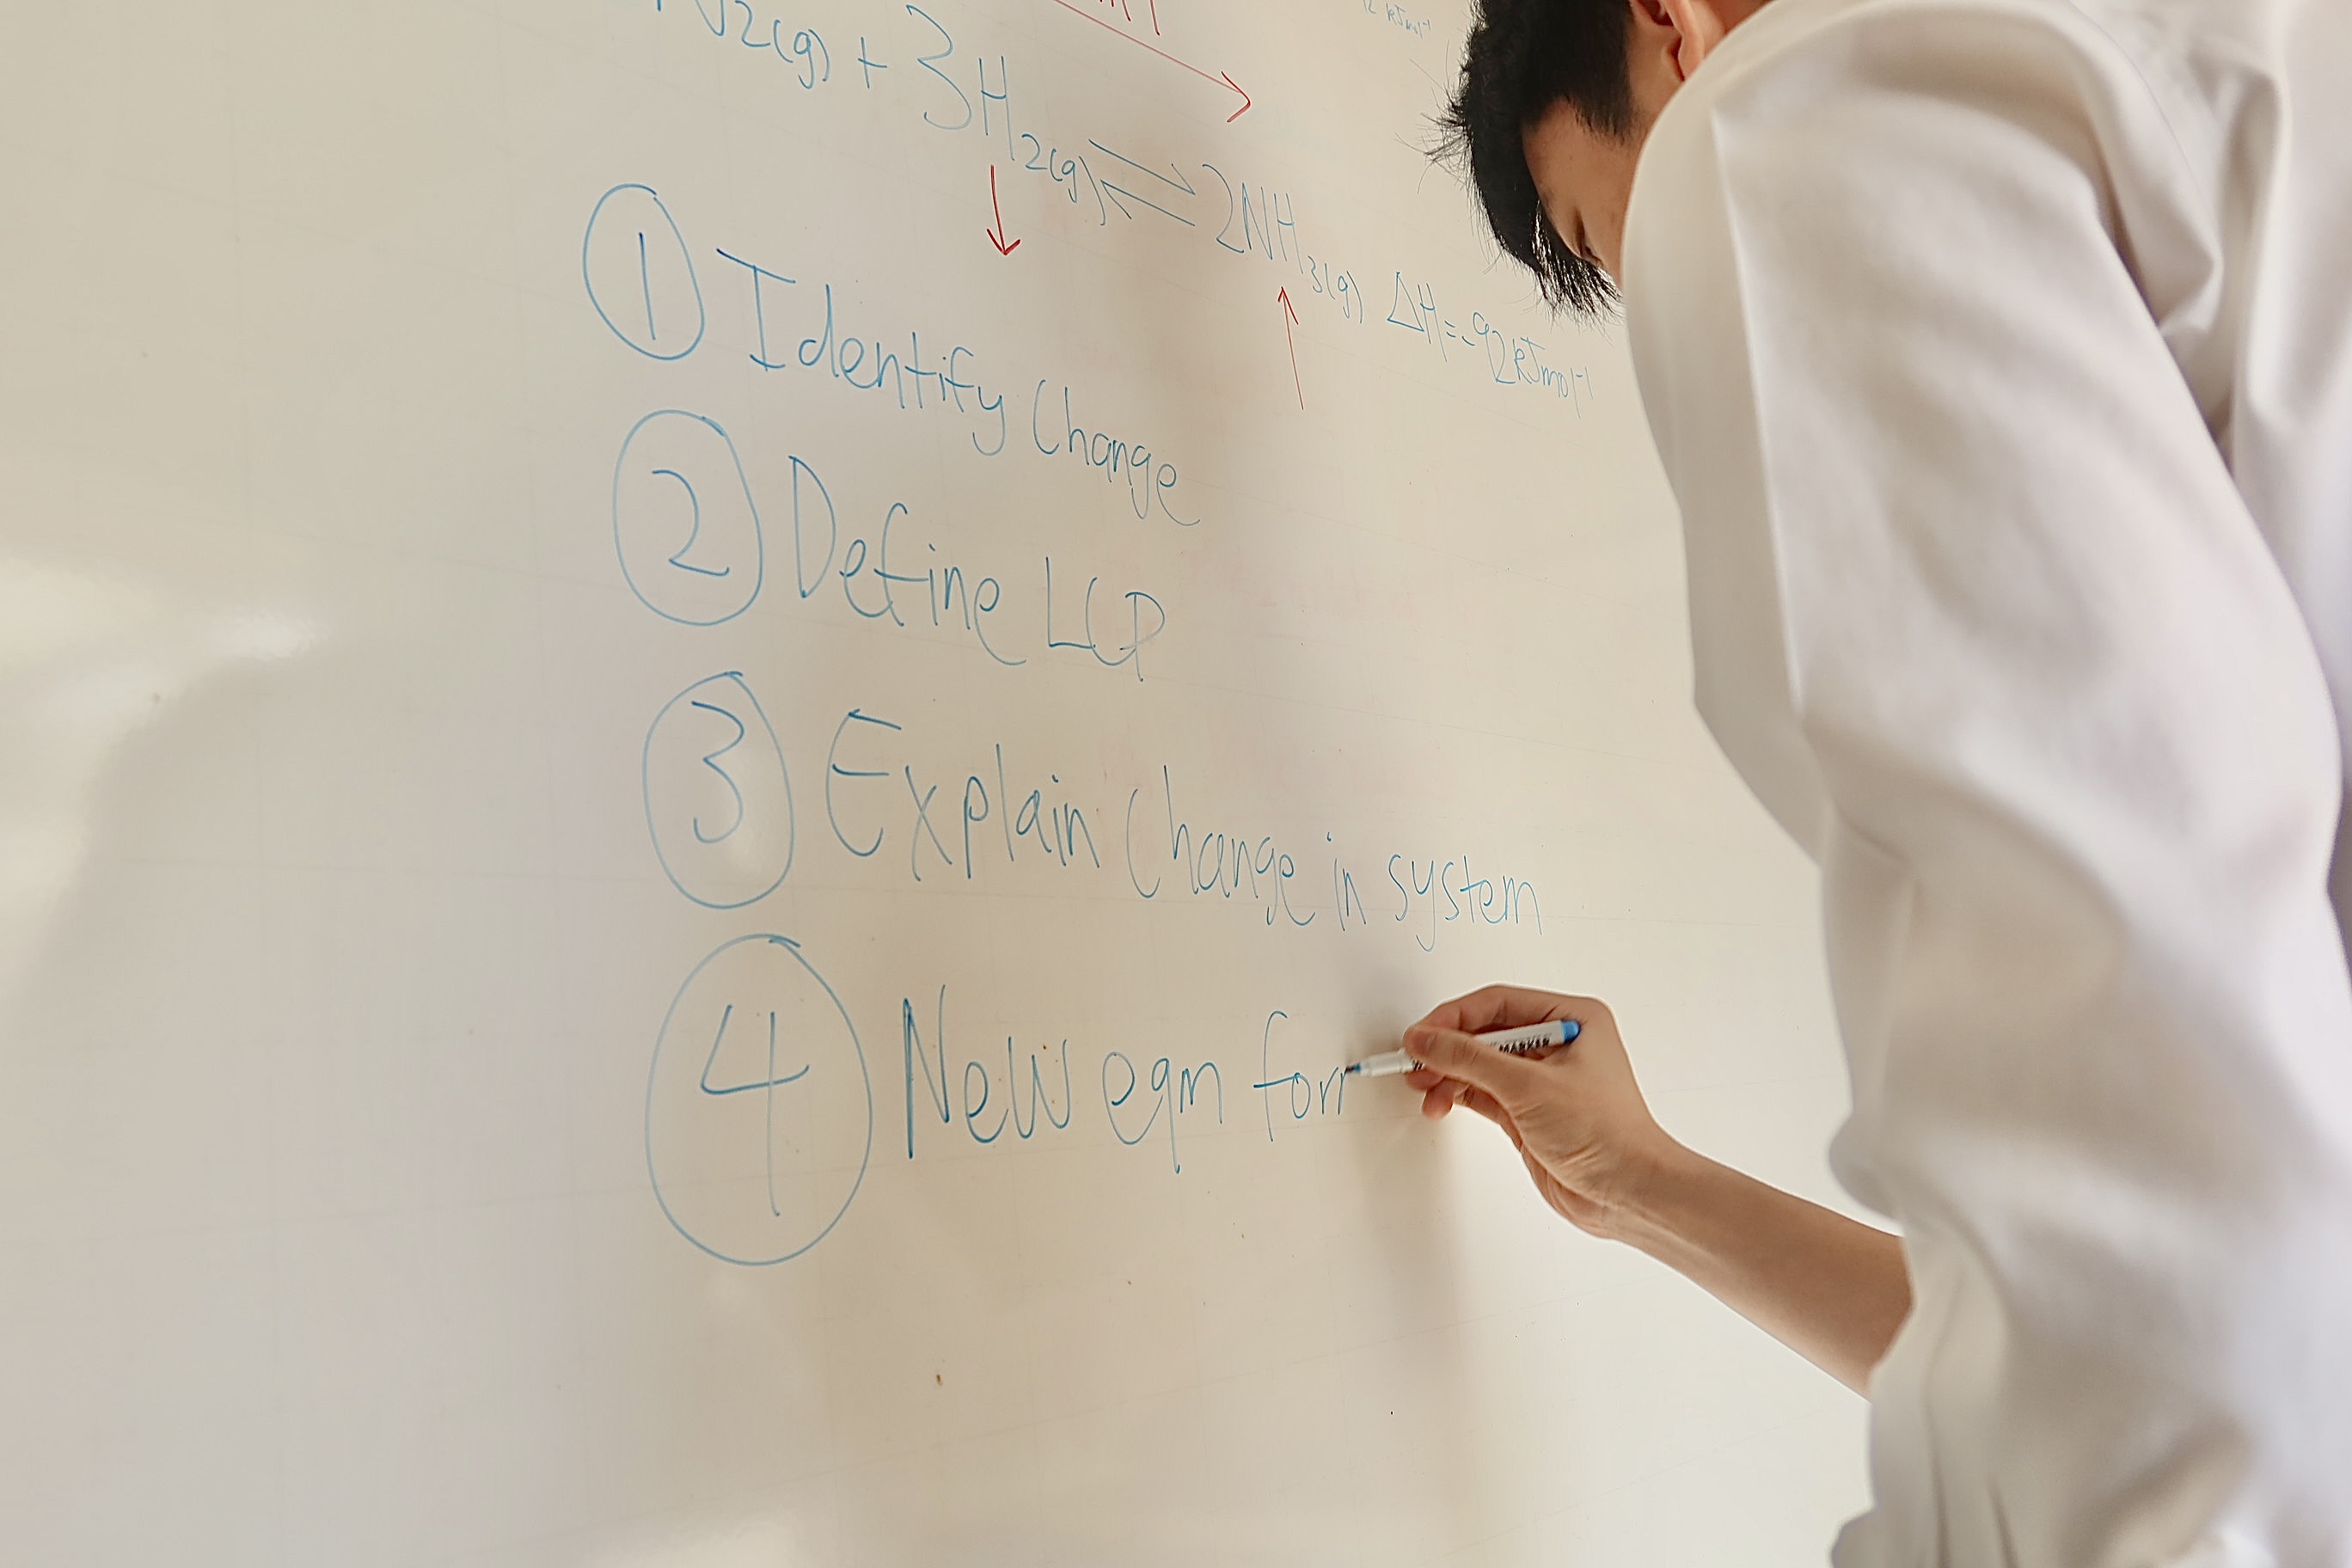 N2(g) + 3H2(g) ⇌ 2NH3(g) ΔH=-92kJmol-1
① Identify Change
② Define LCP
③ Explain Change in system
④ New eqm for
MARKER